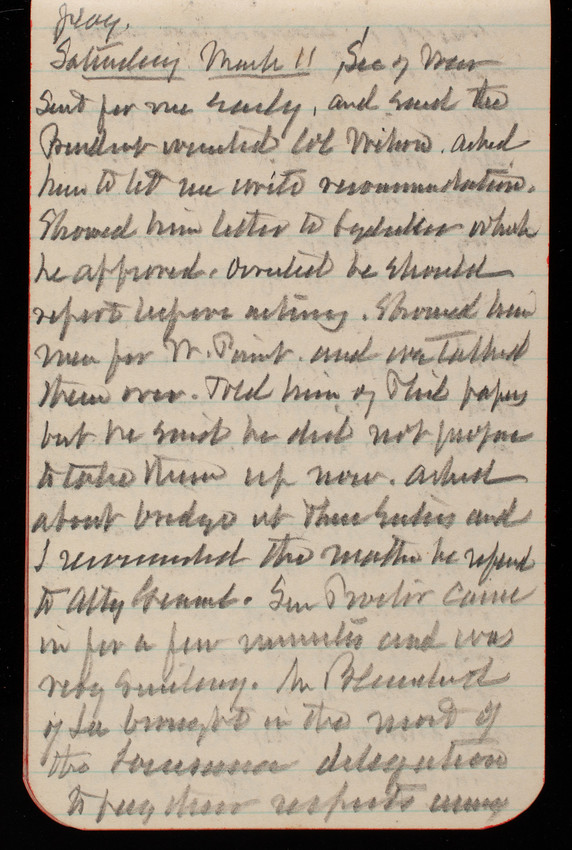 play.
Saturday March 11, Sec of War
sent for me early, and said the
President wanted Col Wilson. asked
him to let me write recommendation.
Showed him letter to which
he approved. wanted he should
report before acting. Showed him
men for W. Point. and we talked
them over. Told him of Phil papers
but he said he did not propose
to take them up now. asked
about bridge at Three and
I recommended the matter be referred
to Atty General. Sen Proctor came
in for a few minutes and was
very smiling. Mr Blanchard
of La brought in the most of
the Louisiana delegation
to pay their respects